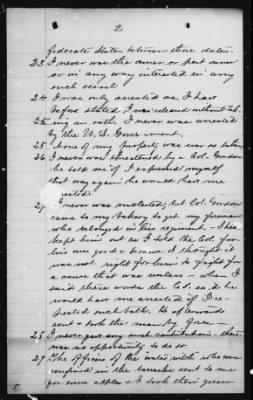 2
federate States between those dates.
23. I never was the owner or part owner
or in any way interested in any
such vessel.
24 I was only arrested as I have
before stated. I was released without tak-
25. ing an oath. I never was arrested
by the U.S. Government.
25. None of my property was ever so taken
26 I never was threatened by a Col. Gordon
he told me if I expressed myself
that way again he would have me
arrested.
27 I never was molested, but Col. Gordon
came to my bakery to get my foreman
who belonged in his regiment. I had
kept him out as I told the Col. for
his own good & because I thought it
was not right for him to fight for
a cause that was useless — when I
said these words the Col. said he
would have me arrested if I re-
peated such talk. He afterwards
sent & took the man by force —
28 I never gave any such contributions — there
was no opportunity to do so
29. The officers of the who were
confined in the barracks sent to me
for some apples & I took them